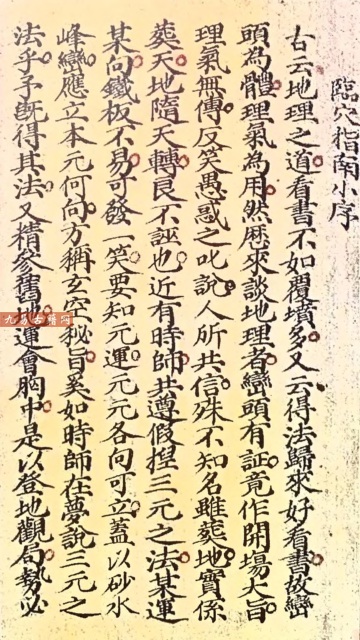 臨穴指南小序
古云地理之道看書不如覆墳多又云得法歸來好看書故巒
頭為體理氣為用然歷來談地理者巒頭有証竟作開場大旨
理氣無傳反笑愚惑之叱說人所共信殊不知名雖葬地實係
葬天地隨天轉良不誣也近有時師共遵假捏三元之法某運
某向鐵板不易可發一笑要知元運元元各向可立蓋以砂水
峰巒應立本元何向方稱玄空秘旨奚如時師在夢說三元之
法乎予既得其法又精參舊地運會胸中是以登地觀局勢必
九易古籍网